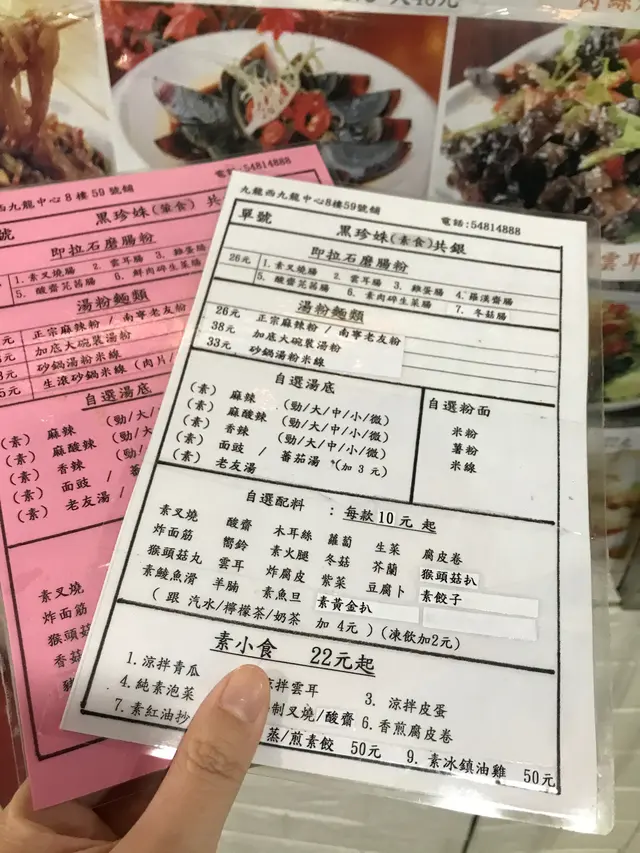 肉絲
電話:54814888
西九龍中心8樓59號鋪
號 黑珍姝(葷食)共
即拉石磨腸粉
1. 素叉燒腸 2. 雲耳腸 3. 雞蛋腸
5. 酸齋芫茜腸 6. 鮮肉碎生菜腸
湯粉麵類
正宗麻辣粉 / 南寧老友粉
加底大碗裝湯粉
砂鍋湯粉米線
生滾砂鍋米線 (肉片/
自選湯底
(素) 麻辣 (勁/大/
(素) 麻酸辣 (勁/大/
(素) 香辣 (勁/大
(素) 面豉 / 蕃
(素) 老友湯
素叉燒
炸面筋
猴頭菇
香菇
九龍西九龍中心8樓59號舖
電話:54814888
單號 黑珍姝(素食)共銀
即拉石磨腸粉
26元 1. 素叉燒腸 2. 雲耳腸 3. 雞蛋腸 4. 羅漢齋腸
5. 酸齋芫茜腸 6. 素肉碎生菜腸 7. 冬菇腸
湯粉麵類
26元 正宗麻辣粉 / 南寧老友粉
38元 加底大碗裝湯粉
33元 砂鍋湯粉米線
自選湯底
(素) 麻辣 (勁/大/中/小/微)
(素) 麻酸辣 (勁/大/中/小/微)
(素) 香辣 (勁/大/中/小/微)
(素) 面豉 / 蕃茄湯 (加3元)
(素) 老友湯
自選粉面
米粉
薯粉
米線
自選配料 : 每款10元 起
素叉燒 酸齋 木耳絲 蘿蔔 生菜 腐皮卷
炸面筋 嚮鈴 素火腿 冬菇 芥蘭 猴頭菇扒
猴頭菇丸 雲耳 炸腐皮 紫菜 豆腐卜 素餃子
素鯪魚滑 羊腩 素魚旦 素黃金扒
( 跟 汽水/檸檬茶/奶茶 加 4元 ) (凍飲加2元)
素小食 22元起
1. 涼拌青瓜 涼拌雲耳 3. 涼拌皮蛋
4. 純素泡菜 制叉燒/酸齋 6. 香煎腐皮卷
7. 素紅油抄 蒸/煎素餃 50元 9. 素冰鎮油雞 50元
雲耳